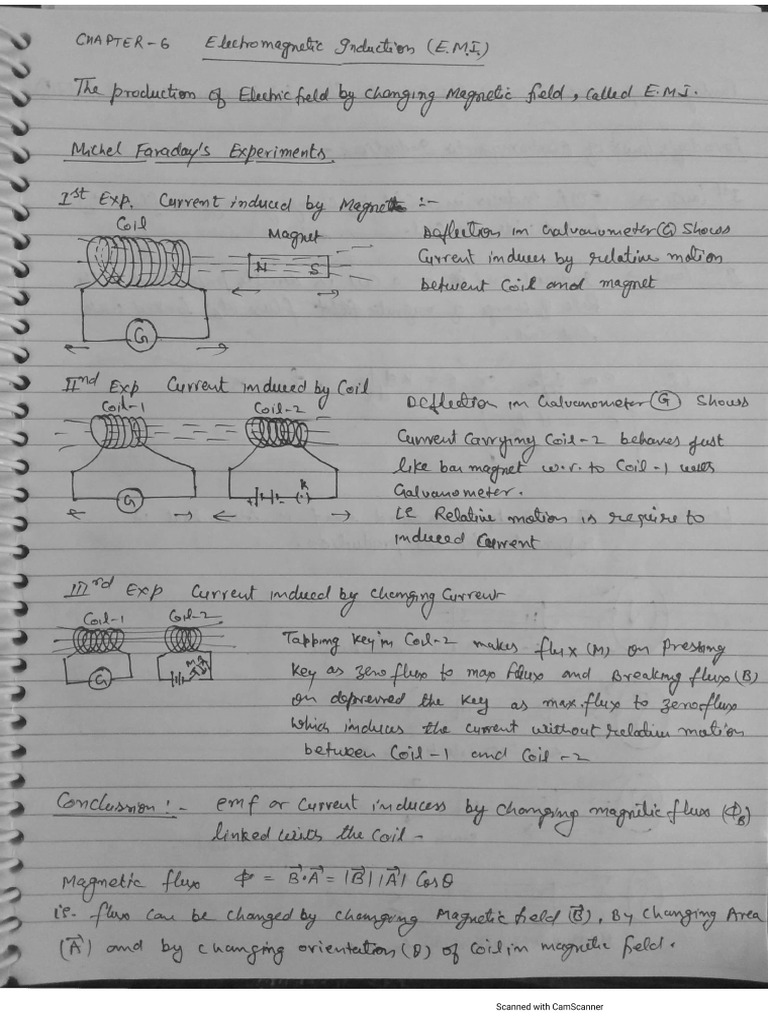 CHAPTER-6 Electromagnetic Induction (E.M.I.)
The production of Electric field by changing Magnetic field, called E.M.I.
Michel Faraday's Experiments.
Ist Exp. Current induced by Magnet :-
Coil
Magnet
N S
G
Deflection in Galvanometer (G) Shows
Current induces by relative motion
between Coil and magnet
IInd Exp Current induced by Coil
Coil-1 Coil-2
G
K
Deflection in Galvanometer (G) Shows
Current Carrying Coil-2 behaves just
like bar magnet w.r.to Coil-1 with
Galvanometer.
i.e Relative motion is require to
induced Current
IIIrd Exp Current induced by changing Current
Coil-1 Coil-2
G
M
Tapping Key in Coil-2 makes flux (M) on Pressing
Key as zero flux to max flux and Breaking flux (B)
on depressed the Key as max. flux to zero flux
which induces the current without relative motion
between Coil-1 and Coil-2
Conclussion :- emf or Current inducess by changing magnetic flux (ΦB)
linked with the Coil-
Magnetic flux Φ = B⃗·A⃗ = |B⃗| |A⃗| Cosθ
i.e. flux can be changed by changing Magnetic field (B⃗), By Changing Area
(A⃗) and by changing orientation (θ) of Coil in magnetic field.
Scanned with CamScanner